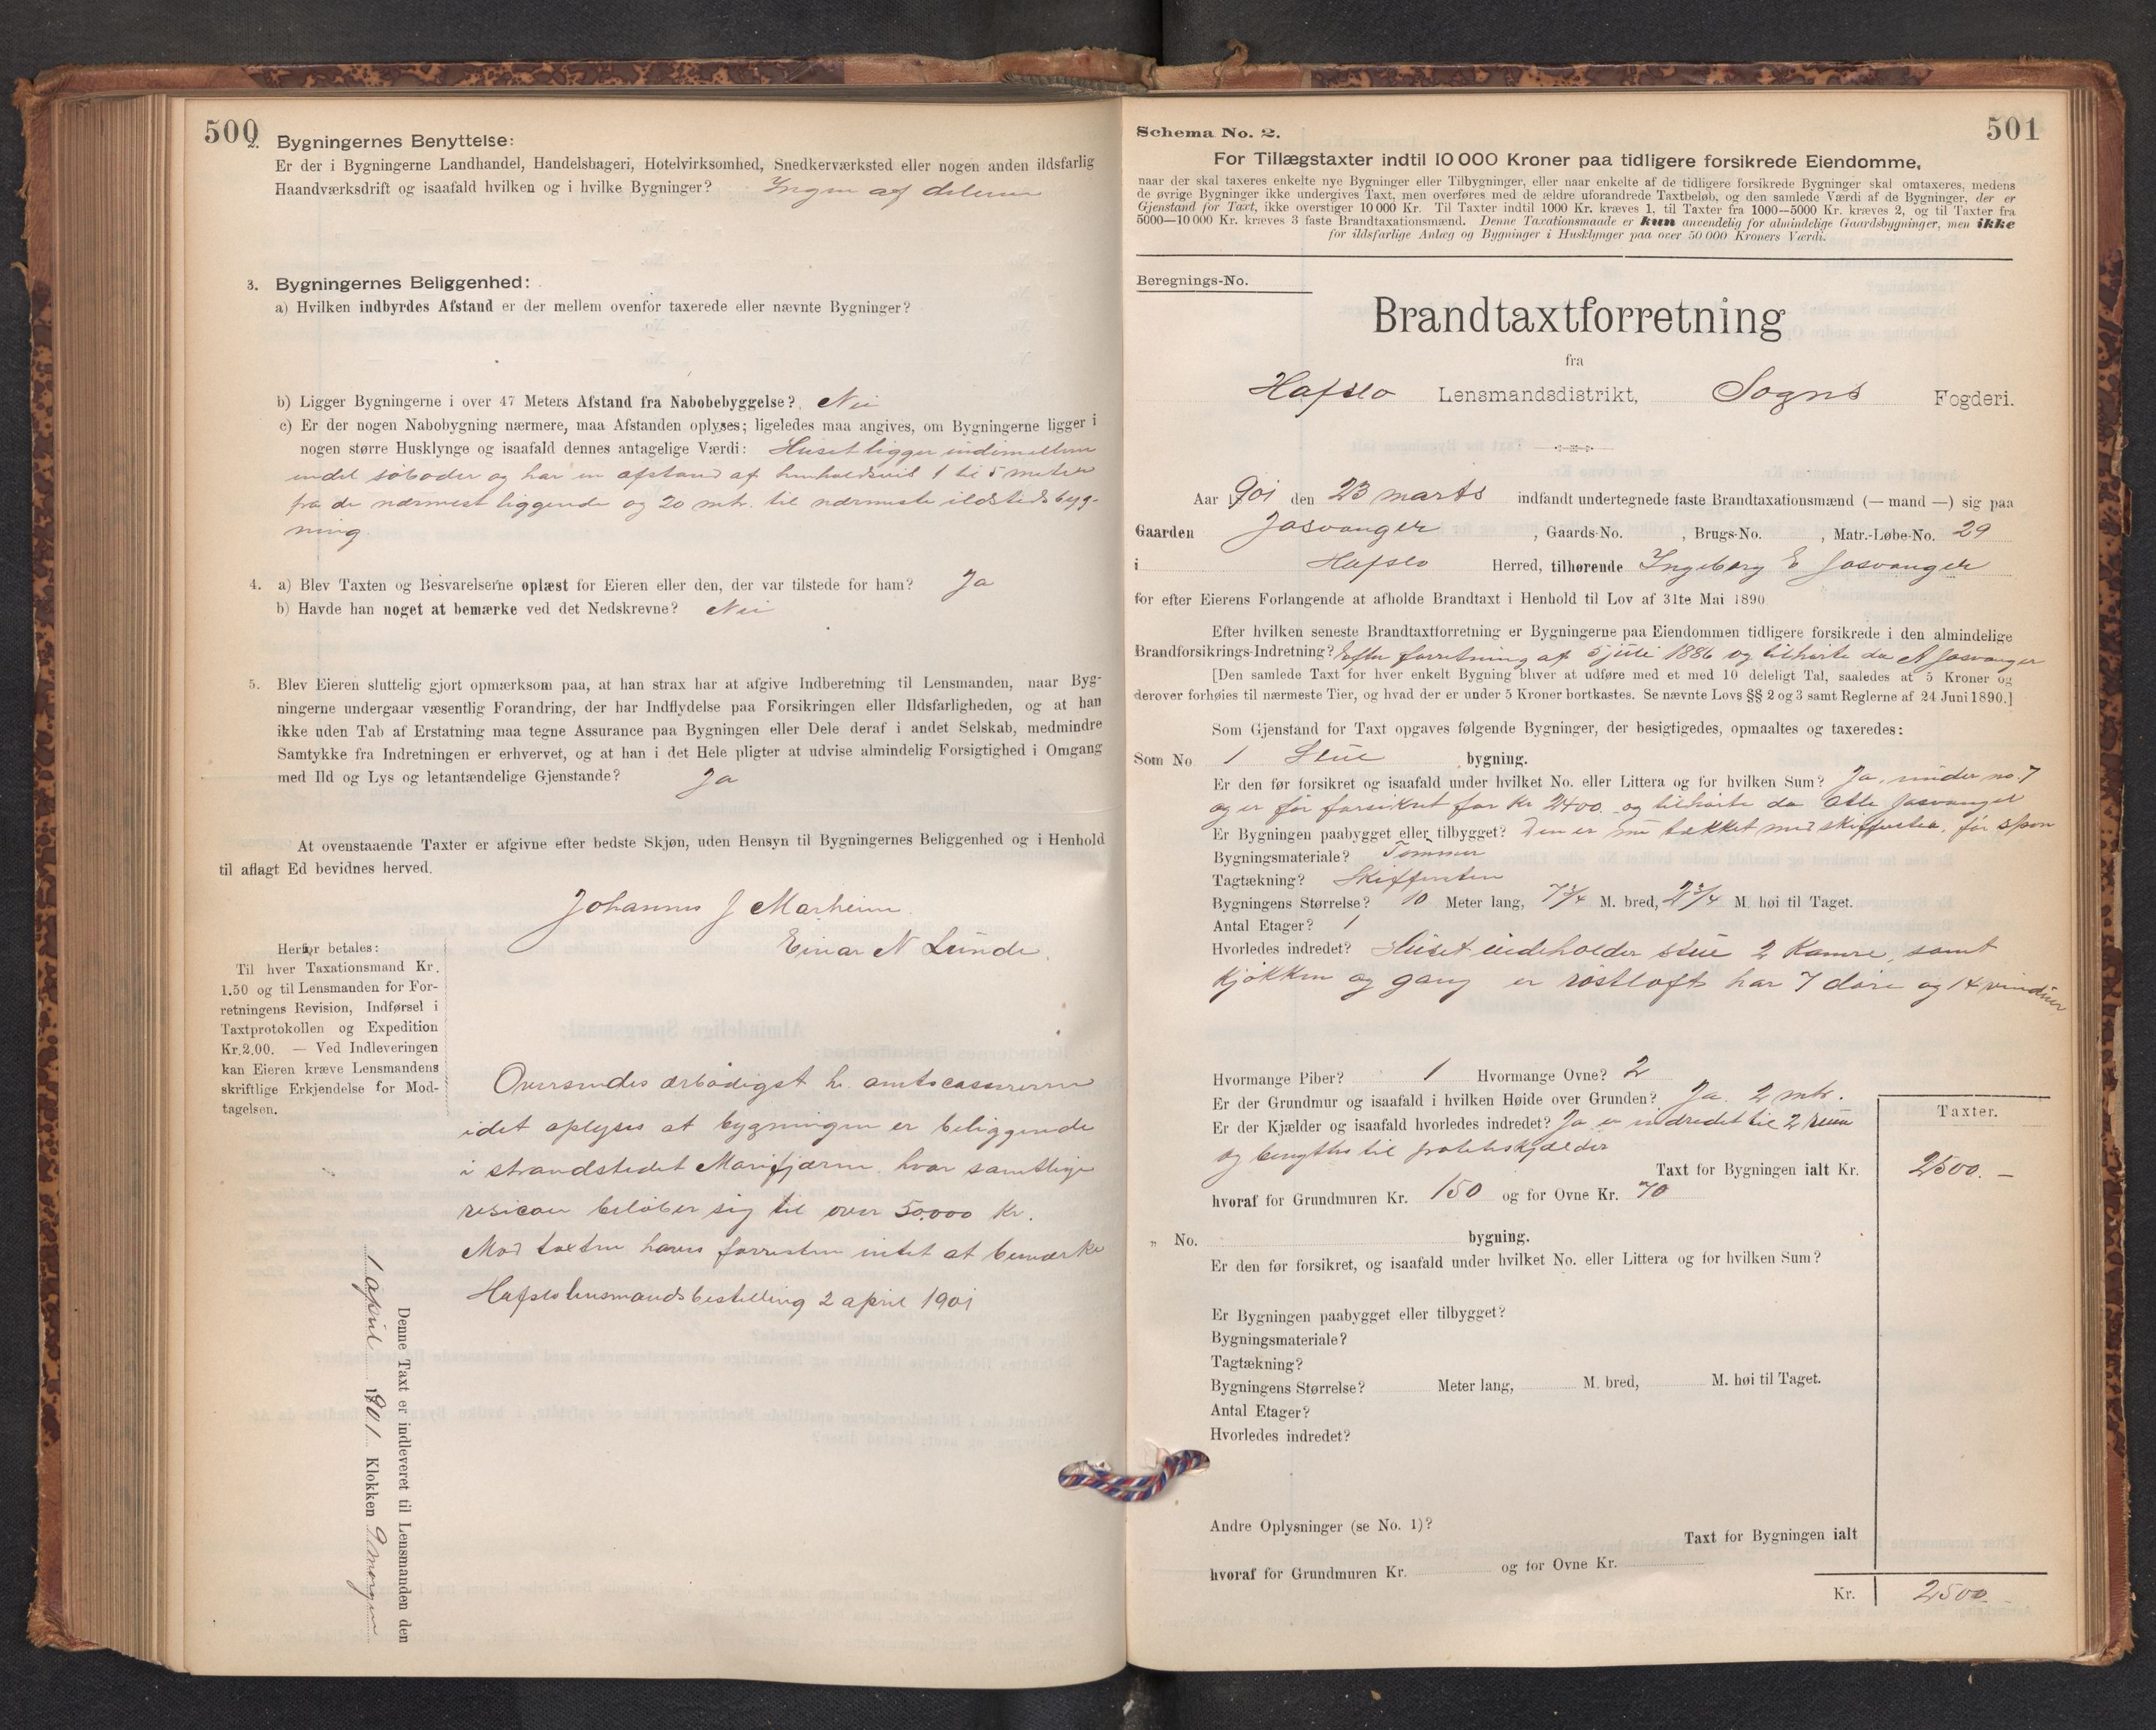 500
2. Bygningernes Benyttelse:
Er der i Bygningerne Landhandel, Handelsbageri, Hotelvirksomhed, Snedkerværksted eller nogen anden ildsfarlig
Haandværksdrift og isaafald hvilken og i hvilke Bygninger? Ingen af delene
3. Bygningernes Beliggenhed:
a) Hvilken indbyrdes Afstand er der mellem ovenfor taxerede eller nævnte Bygninger?
b) Ligger Bygningerne i over 47 Meters Afstand fra Nabobebyggelse? Nei
c) Er der nogen Nabobygning nærmere, maa Afstanden oplyses; ligeledes maa angives, om Bygningerne ligger i
nogen større Husklynge og isaafald dennes antagelige Værdi: Huset ligger indimellem
endel søboder og har en afstand af henholdsvis 1 til 5 meter
fra de nærmest liggende og 20 mtr. til nærmeste ildsteds byg-
ning
4. a) Blev Taxten og Besvarelserne oplæst for Eieren eller den, der var tilstede for ham? Ja
b) Havde han noget at bemærke ved det Nedskrevne? Nei
5. Blev Eieren sluttelig gjort opmærksom paa, at han strax har at afgive Indberetning til Lensmanden, naar Byg-
ningerne undergaar væsentlig Forandring, der har Indflydelse paa Forsikringen eller Ildsfarligheden, og at han
ikke uden Tab af Erstatning maa tegne Assurance paa Bygningen eller Dele deraf i andet Selskab, medmindre
Samtykke fra Indretningen er erhvervet, og at han i det Hele pligter at udvise almindelig Forsigtighed i Omgang
med Ild og Lys og letantændelige Gjenstande? Ja
At ovenstaaende Taxter er afgivne efter bedste Skjøn, uden Hensyn til Bygningernes Beliggenhed og i Henhold
til aflagt Ed bevidnes herved.
Johannes J Marheim
Einar N Lunde.
Herfor betales:
Til hver Taxationsmand Kr.
1.50 og til Lensmanden for For-
retningens Revision, Indførsel i
Taxtprotokollen og Expedition
Kr. 2.00. — Ved Indleveringen
kan Eieren kræve Lensmandens
skriftlige Erkjendelse for Mod-
tagelsen.
Oversendes ærbødigst hr. amtscassereren
idet oplyses at bygningen er beliggende
i strandstedet Marifjæren hvor samtlige
resicoer beløber sig til over 50.000 Kr.
Mod taxten haves forresten intet at bemærke
Hafslo lensmandsbestilling 2 april 1901
Denne Taxt er indleveret til Lensmanden den
1 april 1901 Klokken 9 morgen
501
Schema No. 2.
For Tillægstaxter indtil 10 000 Kroner paa tidligere forsikrede Eiendomme,
naar der skal taxeres enkelte nye Bygninger eller Tilbygninger, eller naar enkelte af de tidligere forsikrede Bygninger skal omtaxeres, medens
de øvrige Bygninger ikke undergives Taxt, men overføres med de ældre uforandrede Taxtbeløb, og den samlede Værdi af de Bygninger, der er
Gjenstand for Taxt, ikke overstiger 10 000 Kr. Til Taxter indtil 1000 Kr. kræves 1, til Taxter fra 1000—5000 Kr. kræves 2, og til Taxter fra
5000—10 000 Kr. kræves 3 faste Brandtaxationsmænd. Denne Taxationsmaade er kun anvendelig for almindelige Gaardsbygninger, men ikke
for ildsfarlige Anlæg og Bygninger i Husklynger paa over 50 000 Kroners Værdi.
Beregnings-No.
Brandtaxtforretning
fra
Hafslo Lensmandsdistrikt, Sogns Fogderi.
Aar 1901 den 23 marts indfandt undertegnede faste Brandtaxationsmænd (— mand —) sig paa
Gaarden Josvanger, Gaards-No. , Brugs-No. , Matr.-Løbe-No. 29
i Hafslo Herred, tilhørende Ingeborg E Josvanger
for efter Eierens Forlangende at afholde Brandtaxt i Henhold til Lov af 31te Mai 1890
Efter hvilken seneste Brandtaxtforretning er Bygningerne paa Eiendommen tidligere forsikrede i den almindelige
Brandforsikrings-Indretning? Efter forretning af 5 juli 1886 og tilhørte da A Josvanger
[Den samlede Taxt for hver enkelt Bygning bliver at udføre med et med 10 deleligt Tal, saaledes at 5 Kroner og
derover forhøies til nærmeste Tier, og hvad der er under 5 Kroner bortkastes. Se nævnte Lovs §§ 2 og 3 samt Reglerne af 24 Juni 1890.]
Som Gjenstand for Taxt opgaves følgende Bygninger, der besigtigedes, opmaaltes og taxeredes:
Som No 1 Stue bygning.
Er den før forsikret og isaafald under hvilket No. eller Littera og for hvilken Sum? Ja, under no. 7
og er før forsikret for Kr 2400. og tilhørte da Atle Josvanger
Er Bygningen paabygget eller tilbygget? Den er nu tækket med skiffersten, før spon
Bygningsmateriale? Tømmer
Tagtækning? Skiffersten
Bygningens Størrelse? 10 Meter lang, 7 3/4 M. bred, 2 3/4 M. høi til Taget.
Antal Etager? 1
Hvorledes indredet? Huset indeholder stue 2 Kamre, samt
Kjøkken og gang er røstloft har 7 døre og 14 vinduer
Hvormange Piber? 1 Hvormange Ovne? 2
Er der Grundmur og isaafald i hvilken Høide over Grunden? Ja. 2 mtr.
Er der Kjælder og isaafald hvorledes indredet? Ja er indredet til 2 rum
og benyttes til potetskjælder
Taxter.
Taxt for Bygningen ialt Kr. 2500. —
hvoraf for Grundmuren Kr. 150 og for Ovne Kr. 70
„ No. bygning.
Er den før forsikret, og isaafald under hvilket No. eller Littera og for hvilken Sum?
Er Bygningen paabygget eller tilbygget?
Bygningsmateriale?
Tagtækning?
Bygningens Størrelse? Meter lang, M. bred, M. høi til Taget.
Antal Etager?
Hvorledes indredet?
Andre Oplysninger (se No. 1)?
Taxt for Bygningen ialt
hvoraf for Grundmuren Kr. og for Ovne Kr.
Kr. 2500. –